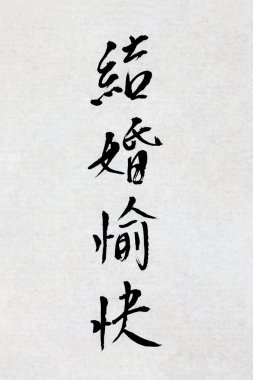 結婚愉快